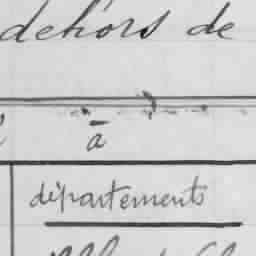 dehors de
à
départements